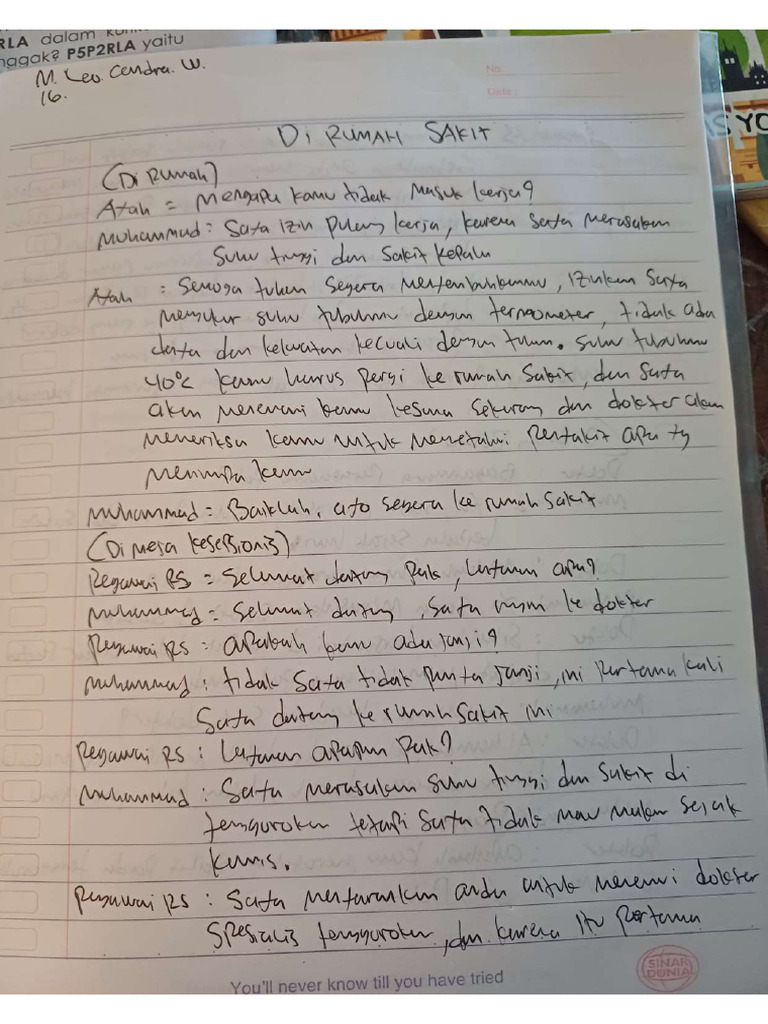 RLA dalam kun
nggak? P5P2RLA yaitu
M. Leo. Cendra. W.
16.
No
Code :
AS YO
DI RUMAH SAKIT
(Di Rumah)
Ayah = Mengapa kamu tidak masuk kerja?
Muhammad : Saya izin pulang kerja, karena saya merasakan
suhu tinggi dan sakit kepala
Ayah : Semoga tuhan segera menyembuhkanmu, izinkan saya
mengukur suhu tubuhmu dengan termometer, tidak ada
daya dan kekuatan kecuali dengan tuhan. suhu tubuhmu
40°C kamu harus pergi ke rumah sakit, dan saya
akan menemani kamu kesana sekarang dan dokter akan
memeriksa kamu untuk mengetahui penyakit apa yg
menimpa kamu
Muhammad = Baiklah, ayo segera ke rumah sakit
(Di meja resepsionis)
Pegawai RS = Selamat datang pak, layanan apa?
Muhammad = Selamat datang, saya ingin ke dokter
Pegawai RS : apakah kamu ada janji?
Muhammad : tidak saya tidak punya janji, ini pertama kali
saya datang ke rumah sakit ini
Pegawai RS : layanan apapun pak?
Muhammad : Saya merasakan suhu tinggi dan sakit di
tenggorokan tetapi saya tidak mau makan sejak
kamis.
Pegawai RS : Saya menyarankan anda untuk menemui dokter
spesialis tenggorokan, dan karena itu pertama
You'll never know till you have tried
SINAR
DUNIA